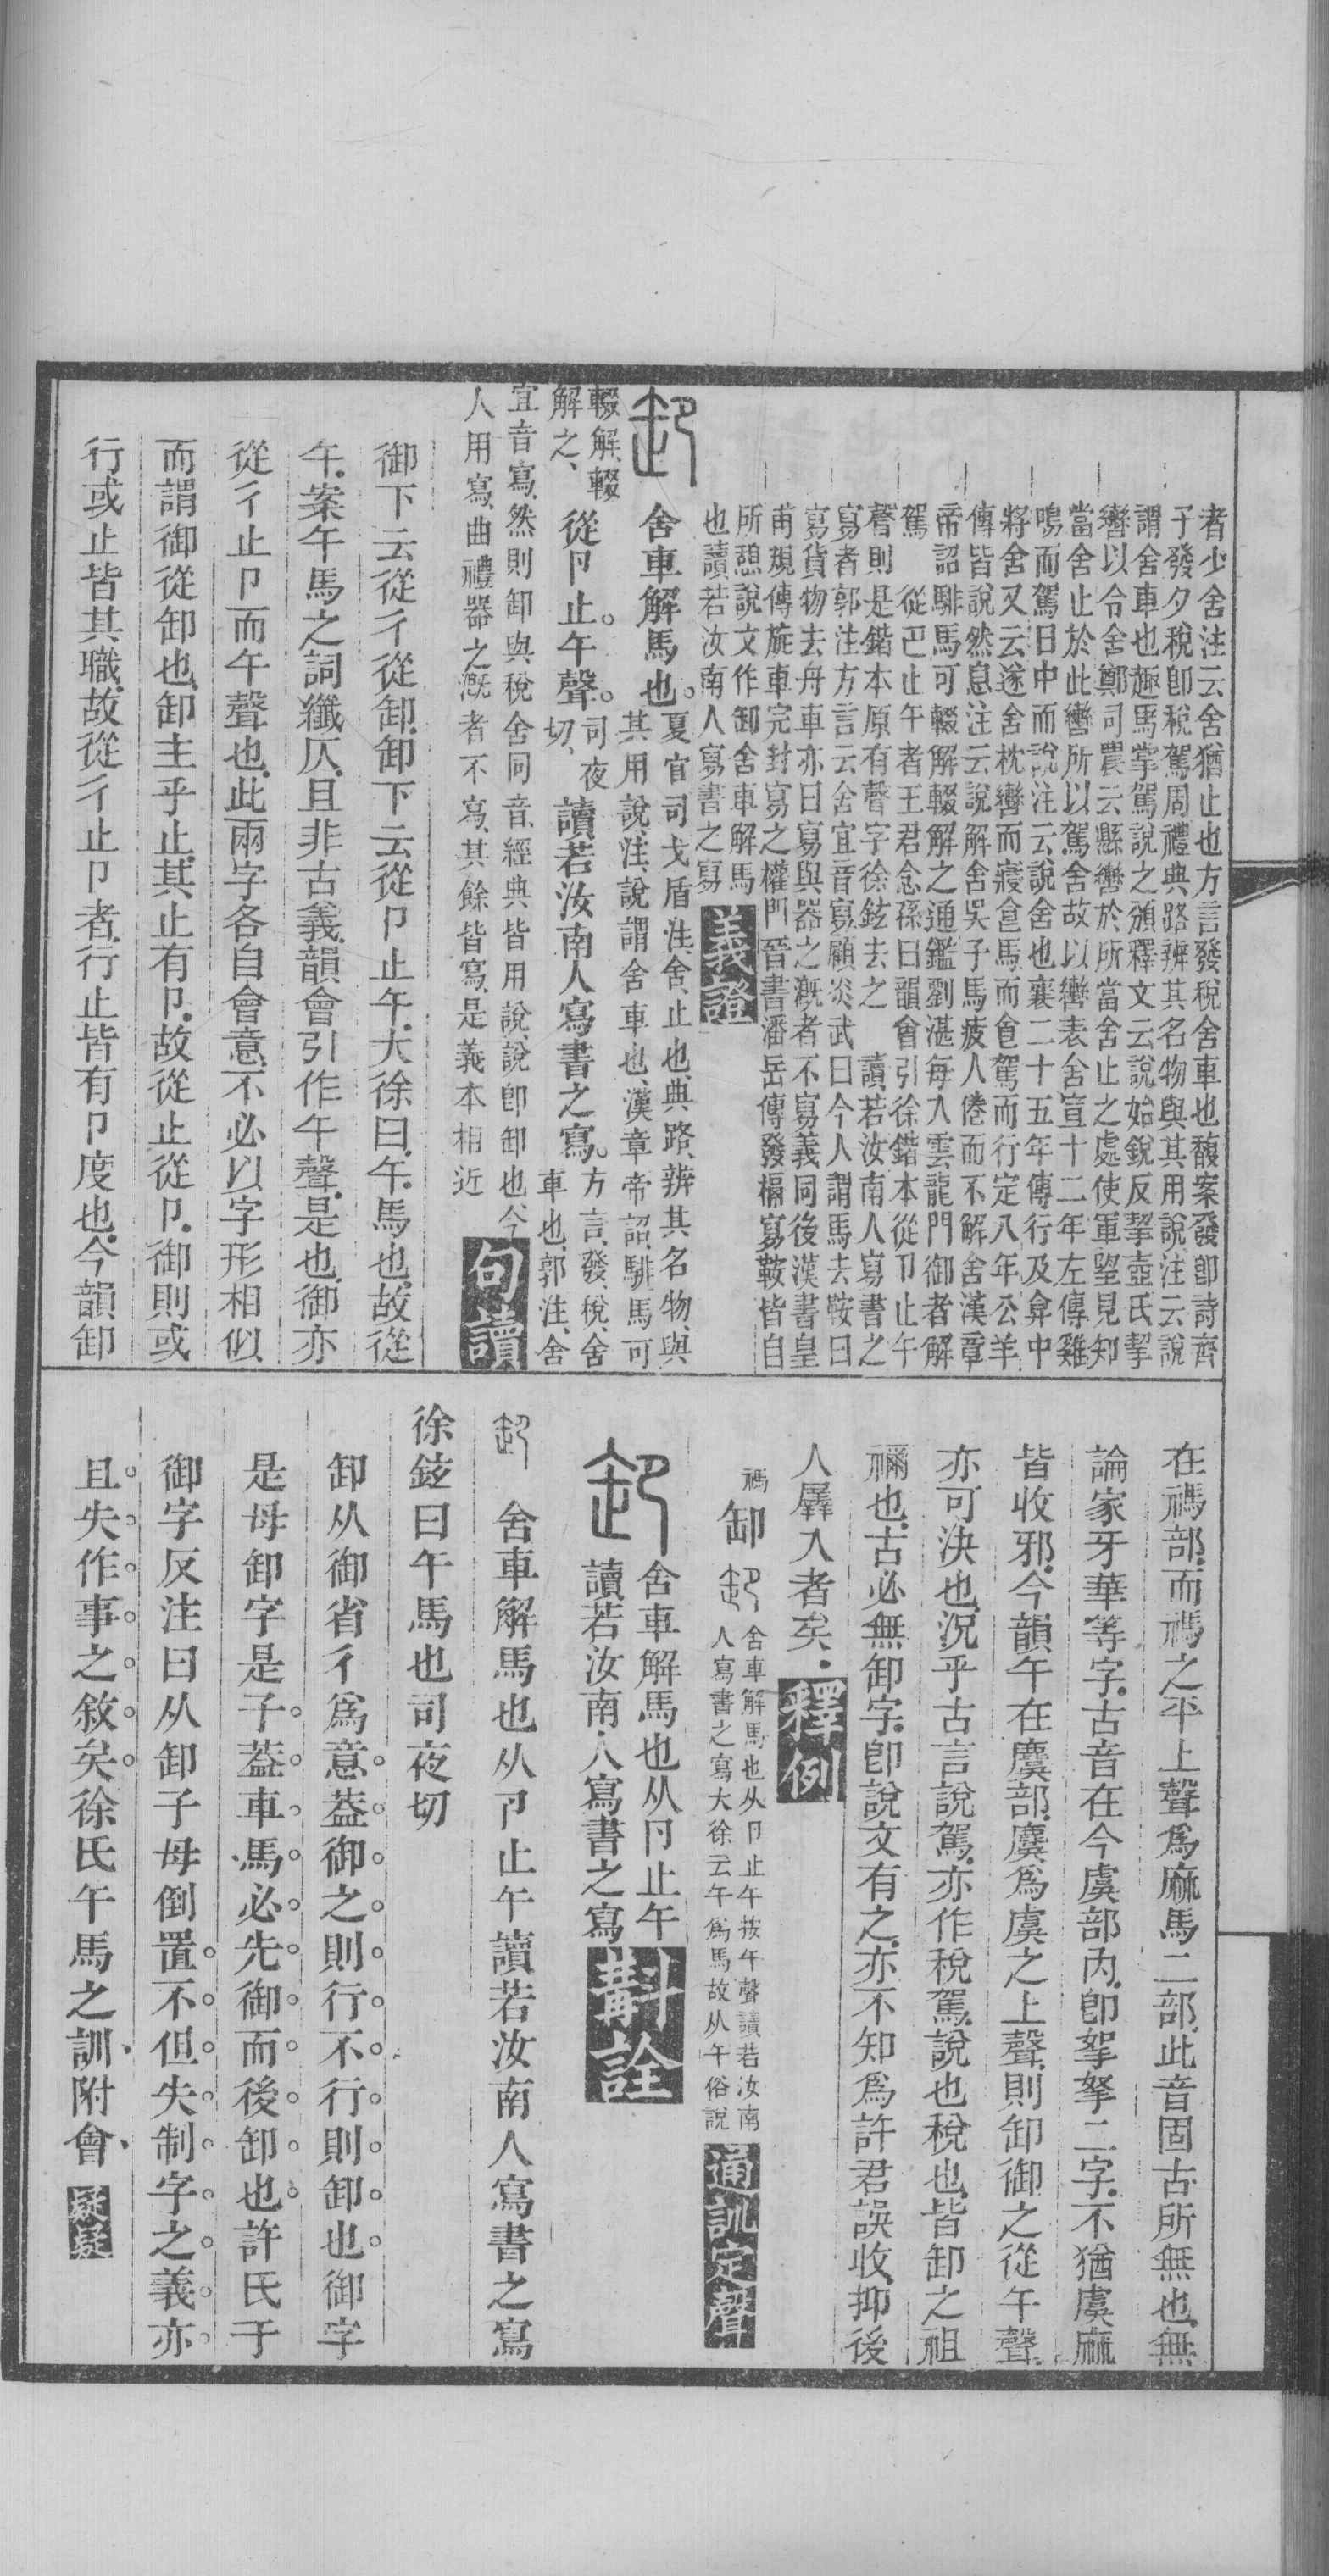 者少舍注云舍猶止也方言發稅舍車也馥案發卽詩齊
子發夕稅卽稅駕周禮典路辨其名物與其用說注云說
謂舍車也趣馬掌駕說之頒釋文云說始銳反挈壺氏挈
轡以令舍鄭司農云縣轡於所當舍止之處使軍望見知
當舍止於此轡所以駕舍故以轡表舍宣十二年左傳雞
鳴而駕日中而說注云說舍也襄二十五年傳行及弇中
將舍又云遂舍枕轡而寢食馬而食駕而行定八年公羊
傳皆說然息注云說解舍吳子馬疲人倦而不解舍漢章
帝詔騑馬可輟解輟解之通鑑劉湛每入雲龍門御者解
駕　從卩止午者王君念孫曰韻會引徐鍇本從卩止午
聲則是鍇本原有聲字徐鉉去之　讀若汝南人寫書之
寫者郭注方言云舍宜音寫顧炎武曰今人謂馬去鞍曰
寫貨物去舟車亦曰寫與器之漑者不寫義同後漢書皇
甫規傳旋車完封寫之權門晉書潘岳傳發槅寫鞍皆自
所憩說文作卸舍車解馬
也讀若汝南人寫書之寫 義證
卸 舍車解馬也。夏官司戈盾注、舍、止也、典路、辨其名物、與其用說、注、說謂舍車也、漢章帝詔、騑馬可
輟解、輟解之、從卩止。午聲。司夜切、讀若汝南人寫書之寫。方言、發、稅、舍車也、郭注、舍
宜音寫、然則卸與稅舍同音、經典皆用說、說卽卸也、今
人用寫、曲禮器之漑者不寫、其餘皆寫、是義本相近 句讀
御下云從彳從卸、卸下云從卩止午、大徐曰、午、馬也、故從
午、案午馬之詞纖仄、且非古義、韻會引作午聲、是也、御亦
從彳止卩而午聲也、此兩字各自會意、不必以字形相似
而謂御從卸也、卸主乎止、其止有卩、故從止從卩、御則或
行或止皆其職、故從彳止卩者、行止皆有卩度也、今韻卸
在禡部、而禡之平上聲爲麻馬二部、此音固古所無也、無
論家牙華等字、古音在今虞部內、卽挐拏二字、不猶虞麻
皆收邪、今韻午在麌部、麌爲虞之上聲、則卸御之從午聲、
亦可決也、況乎古言說駕、亦作稅駕、說也稅也、皆卸之祖
禰也、古必無卸字、卽說文有之、亦不知爲許君誤收、抑後
人羼入者矣、 釋例
禡 卸 舍車解馬也从卩止午按午聲讀若汝南
人寫書之寫大徐云午爲馬故从午俗說 通訓定聲
卸 舍車解馬也从卩止午
讀若汝南人寫書之寫 斠詮
卸 舍車解馬也从卩止午讀若汝南人寫書之寫
徐鉉曰午馬也司夜切
卸从御省彳爲意葢御之則行不行則卸也御字
是母卸字是子葢車馬必先御而後卸也許氏于
御字反注曰从卸子母倒置不但失制字之義亦
且失作事之敘矣徐氏午馬之訓附會 疑疑